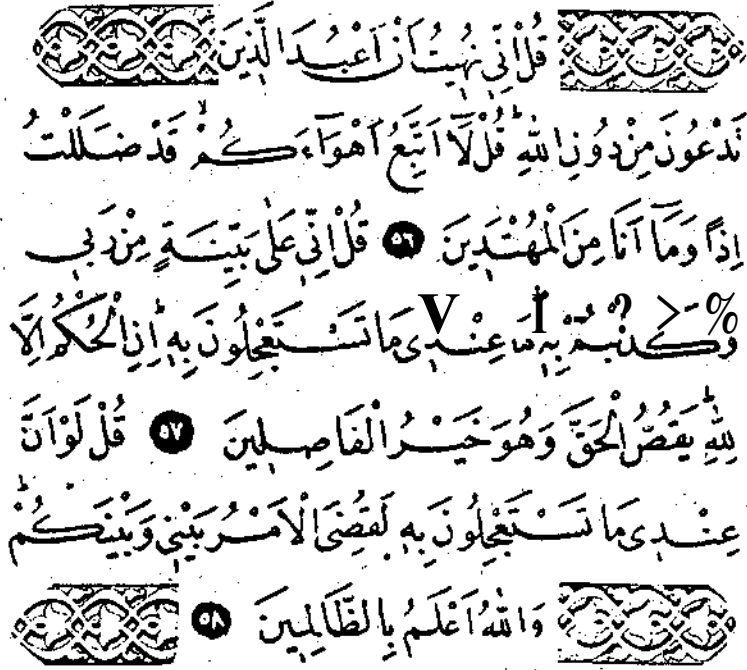 قُلْ اِنّ۪ي نُه۪يتُ اَنْ اَعْبُدَ الَّذ۪ينَ
تَدْعُونَ مِنْ دُونِ اللّٰهِۜ قُلْ لَٓا اَتَّبِعُ اَهْوَٓاءَكُمْۙ قَدْ ضَلَلْتُ
اِذًا وَمَٓا اَنَا۬ مِنَ الْمُهْتَد۪ينَ ٥٦ قُلْ اِنّ۪ي عَلٰى بَيِّنَةٍ مِنْ رَبّ۪ي
وَكَذَّبْتُمْ بِه۪ۜ مَا عِنْد۪ي مَا تَسْتَعْجِلُونَ بِه۪ۜ اِنِ الْحُكْمُ اِلَّا V ? > %
لِلّٰهِۜ يَقُصُّ الْحَقَّ وَهُوَ خَيْرُ الْفَاصِل۪ينَ ٥٧ قُلْ لَوْ اَنَّ
عِنْد۪ي مَا تَسْتَعْجِلُونَ بِه۪ لَقُضِيَ الْاَمْرُ بَيْن۪ي وَبَيْنَكُمْۜ
وَاللّٰهُ اَعْلَمُ بِالظَّالِم۪ينَ ٥٨